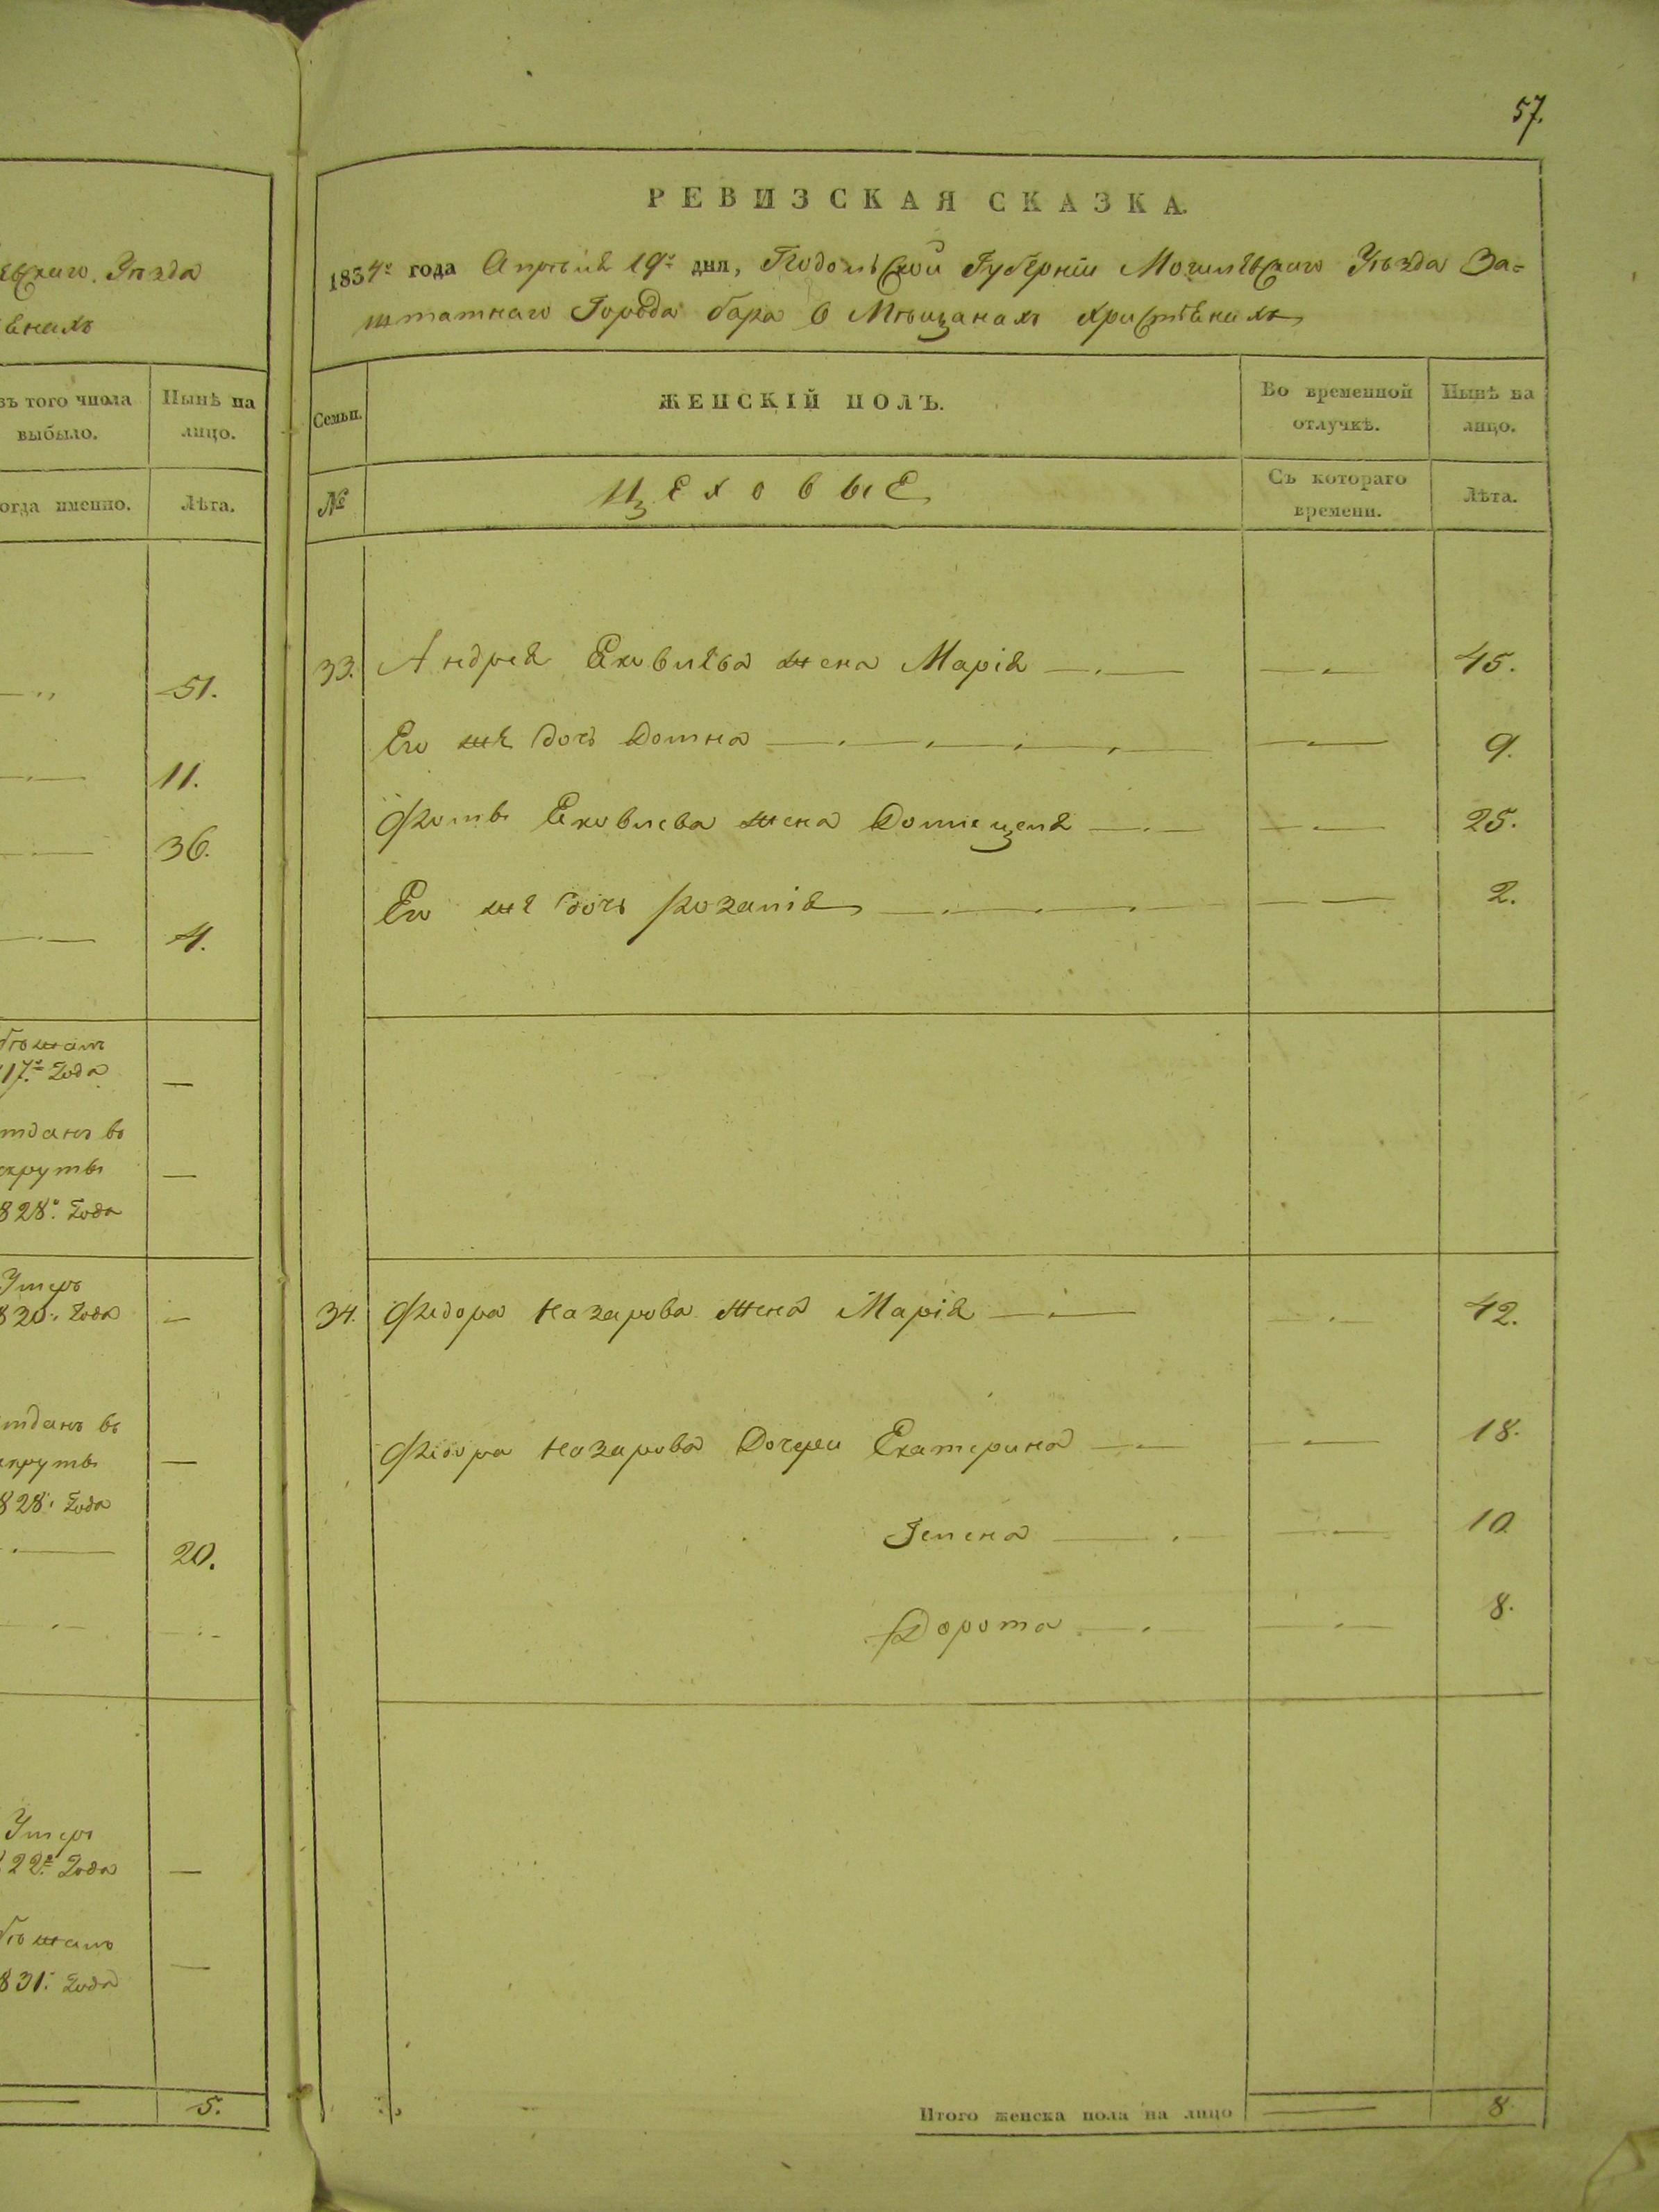 57.
евскаго Уѣзда
внахъ
зъ того числа
выбыло.
Нынѣ на
лицо.
огда именно.
Лѣта.
51.
11.
36.
4.
бѣжалъ
17го года
тданъ въ
екруты
828го года
Умеръ
820го года
тданъ въ
екруты
828го года
20.
Умеръ
22го года
бѣжалъ
831го года
5.
РЕВИЗСКАЯ СКАЗКА.
1834го года Апрѣля 19го дня, Подольской Губерніи Могилевскаго Уѣзда За=
штатнаго Города бара о Мѣщанахъ христіянахъ
Семьи.
ЖЕНСКІЙ ПОЛЪ.
Во временной
отлучкѣ.
Нынѣ на
лицо.
№
Цеховые
Съ котораго
времени.
Лѣта.
33. Андрея Яковлева жена Марія 45.
Его же дочь Домна 9.
Яковлева жена 25.
Его же дочь Розалія 2.
34. Федора Назарова жена Марія 42.
Федора Назарова Дочери Екатерина 18.
Гелена 10
Дорота 8.
Итого женска пола на лицо 8